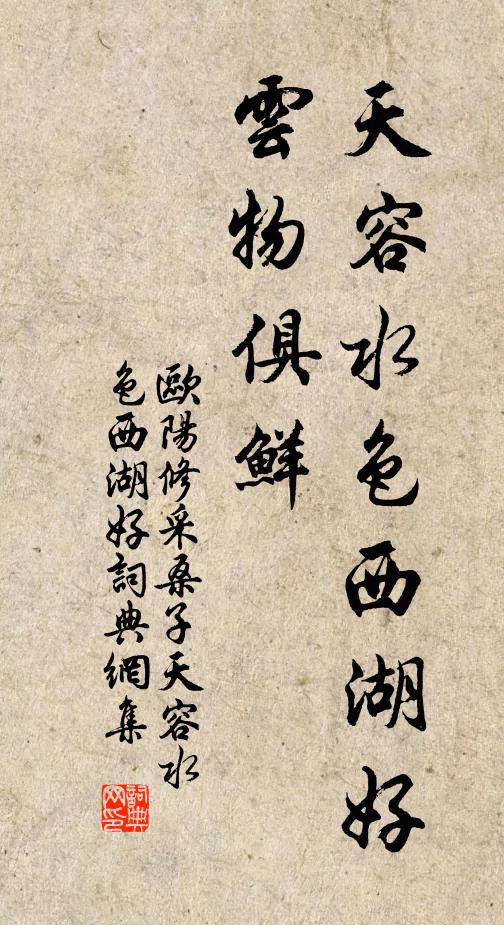 天容水色西湖好
雲物俱鮮
歐陽修采桑子天容水
色西湖好詞典網集
詞典
网印